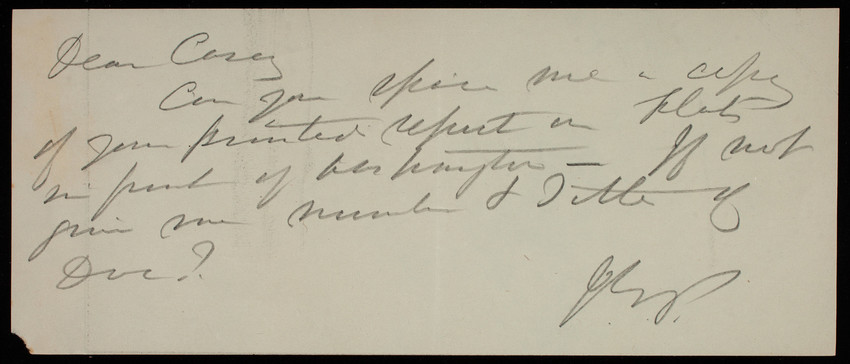 Dear Casey
Can you spare me a copy
of your printed report on flats
in front of Washington — If not
give me number & Title of
Doc?